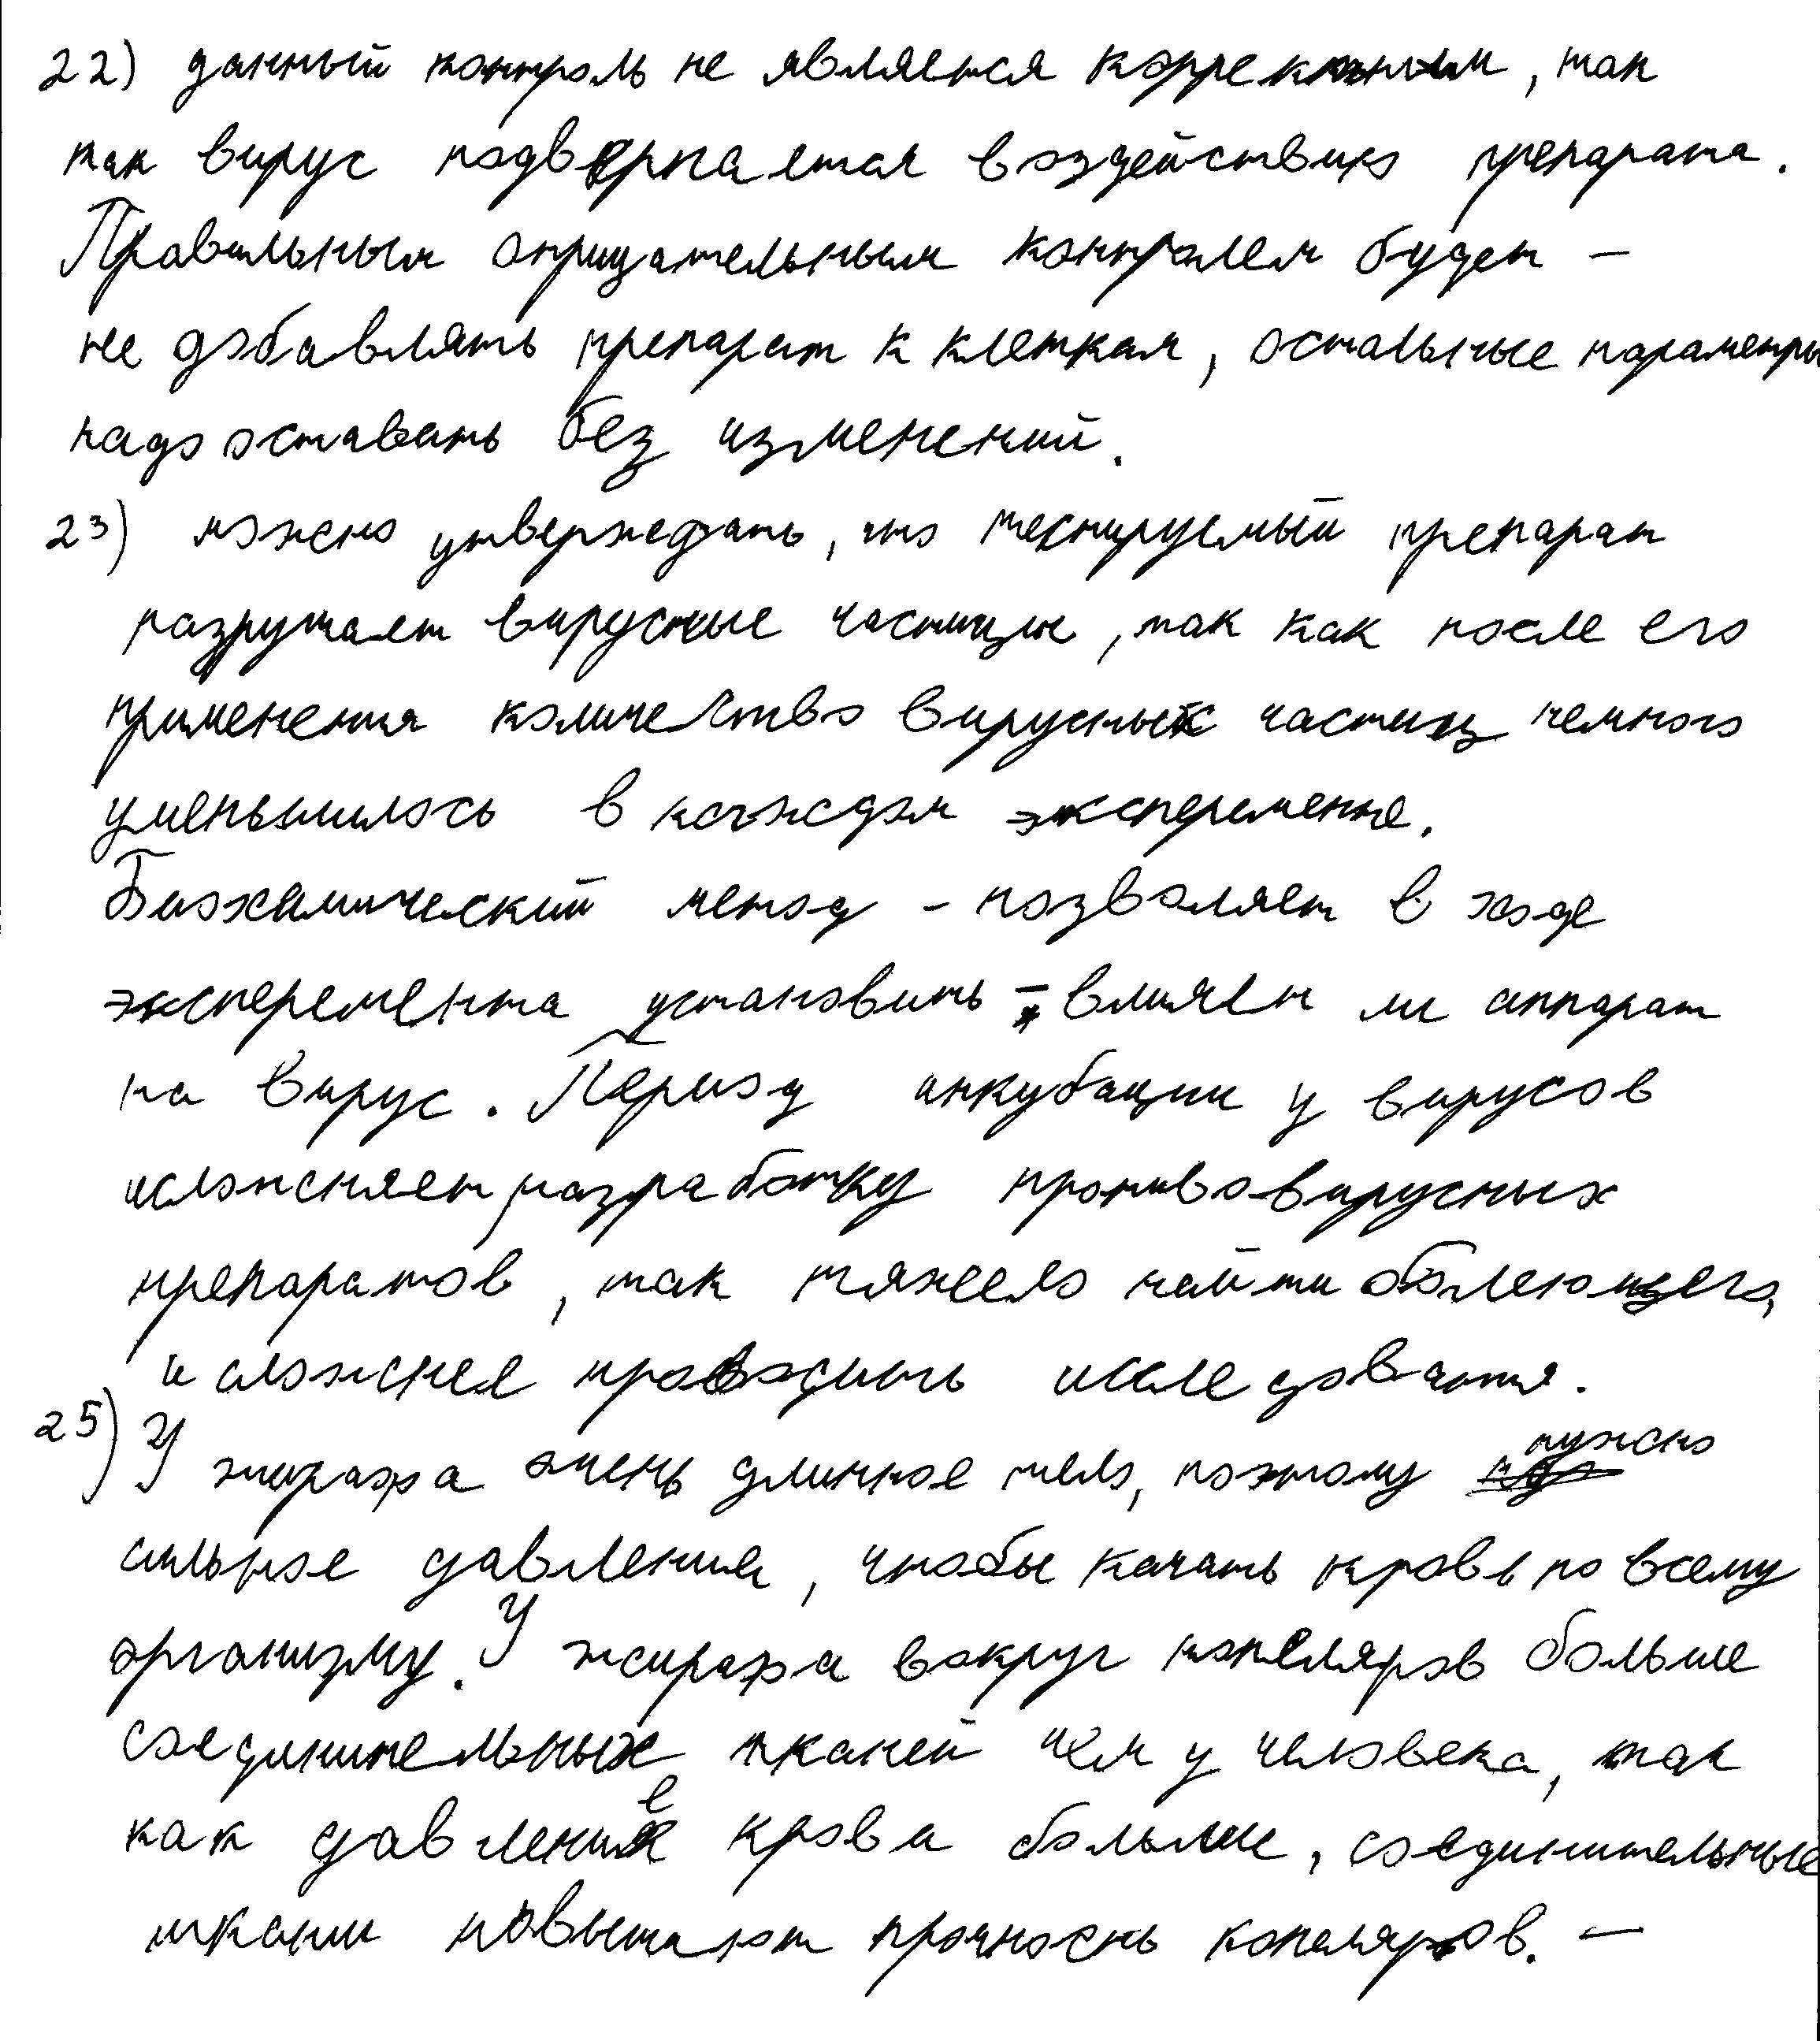 22) данный контроль не является корректным, так
как вирус подвергается воздействию препарата.
Правильным отрицательным контролем будет –
не добавлять препарат к клеткам, остальные параметры
надо оставить без изменений.
23) можно утверждать, что тестируемый препарат
разрушает вирусные частицы, так как после его
применения количество вирусных частиц немного
уменьшилось в каждом эксперементе.
Биохимический метод - позволяет в ходе
эксперемента установить - влияет ли аппарат
на вирус. Период инкубации у вирусов
усложняет разработку противовирусных
препаратов, так тяжело найти оболеющего,
и сложнее проводить исследования.
25) У жирафа очень длинное тело, поэтому нужно
сильное давление, чтобы качать кровь по всему
организму. У жирафа вокруг копеляров больше
соединительных тканей чем у человека, так
как давление крови больше, соединительные
ткани повышают прочность копеляров. –